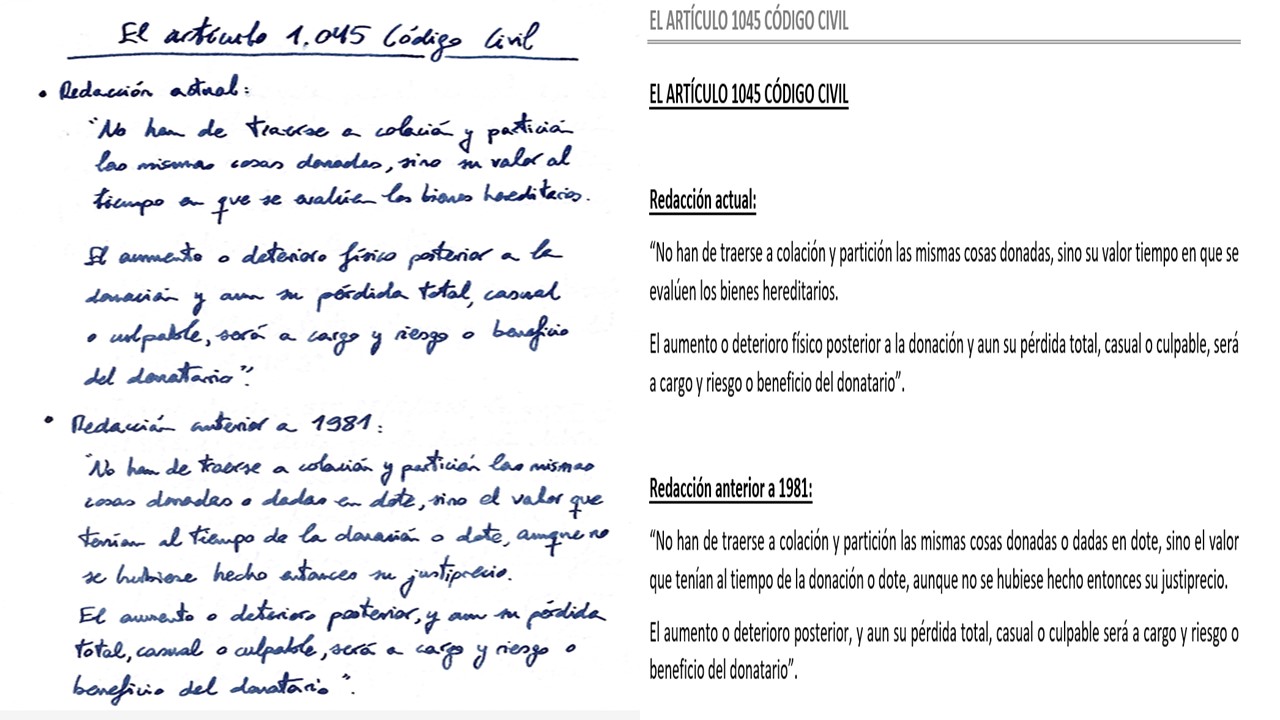 El artículo 1.045 Código Civil
• Redacción actual:
"No han de traerse a colación y partición
las mismas cosas donadas, sino su valor al
tiempo en que se evalúen los bienes hereditarios.
El aumento o deterioro físico posterior a la
donación y aun su pérdida total, casual
o culpable, será a cargo y riesgo o beneficio
del donatario".
• Redacción anterior a 1981:
"No han de traerse a colación y partición las mismas
cosas donadas o dadas en dote, sino el valor que
tenían al tiempo de la donación o dote, aunque no
se hubiese hecho entonces su justiprecio.
El aumento o deterioro posterior, y aun su pérdida
total, casual o culpable, será a cargo y riesgo o
beneficio del donatario".
EL ARTÍCULO 1045 CÓDIGO CIVIL
EL ARTÍCULO 1045 CÓDIGO CIVIL
Redacción actual:
“No han de traerse a colación y partición las mismas cosas donadas, sino su valor tiempo en que se
evalúen los bienes hereditarios.
El aumento o deterioro físico posterior a la donación y aun su pérdida total, casual o culpable, será
a cargo y riesgo o beneficio del donatario”.
Redacción anterior a 1981:
“No han de traerse a colación y partición las mismas cosas donadas o dadas en dote, sino el valor
que tenían al tiempo de la donación o dote, aunque no se hubiese hecho entonces su justiprecio.
El aumento o deterioro posterior, y aun su pérdida total, casual o culpable será a cargo y riesgo o
beneficio del donatario”.